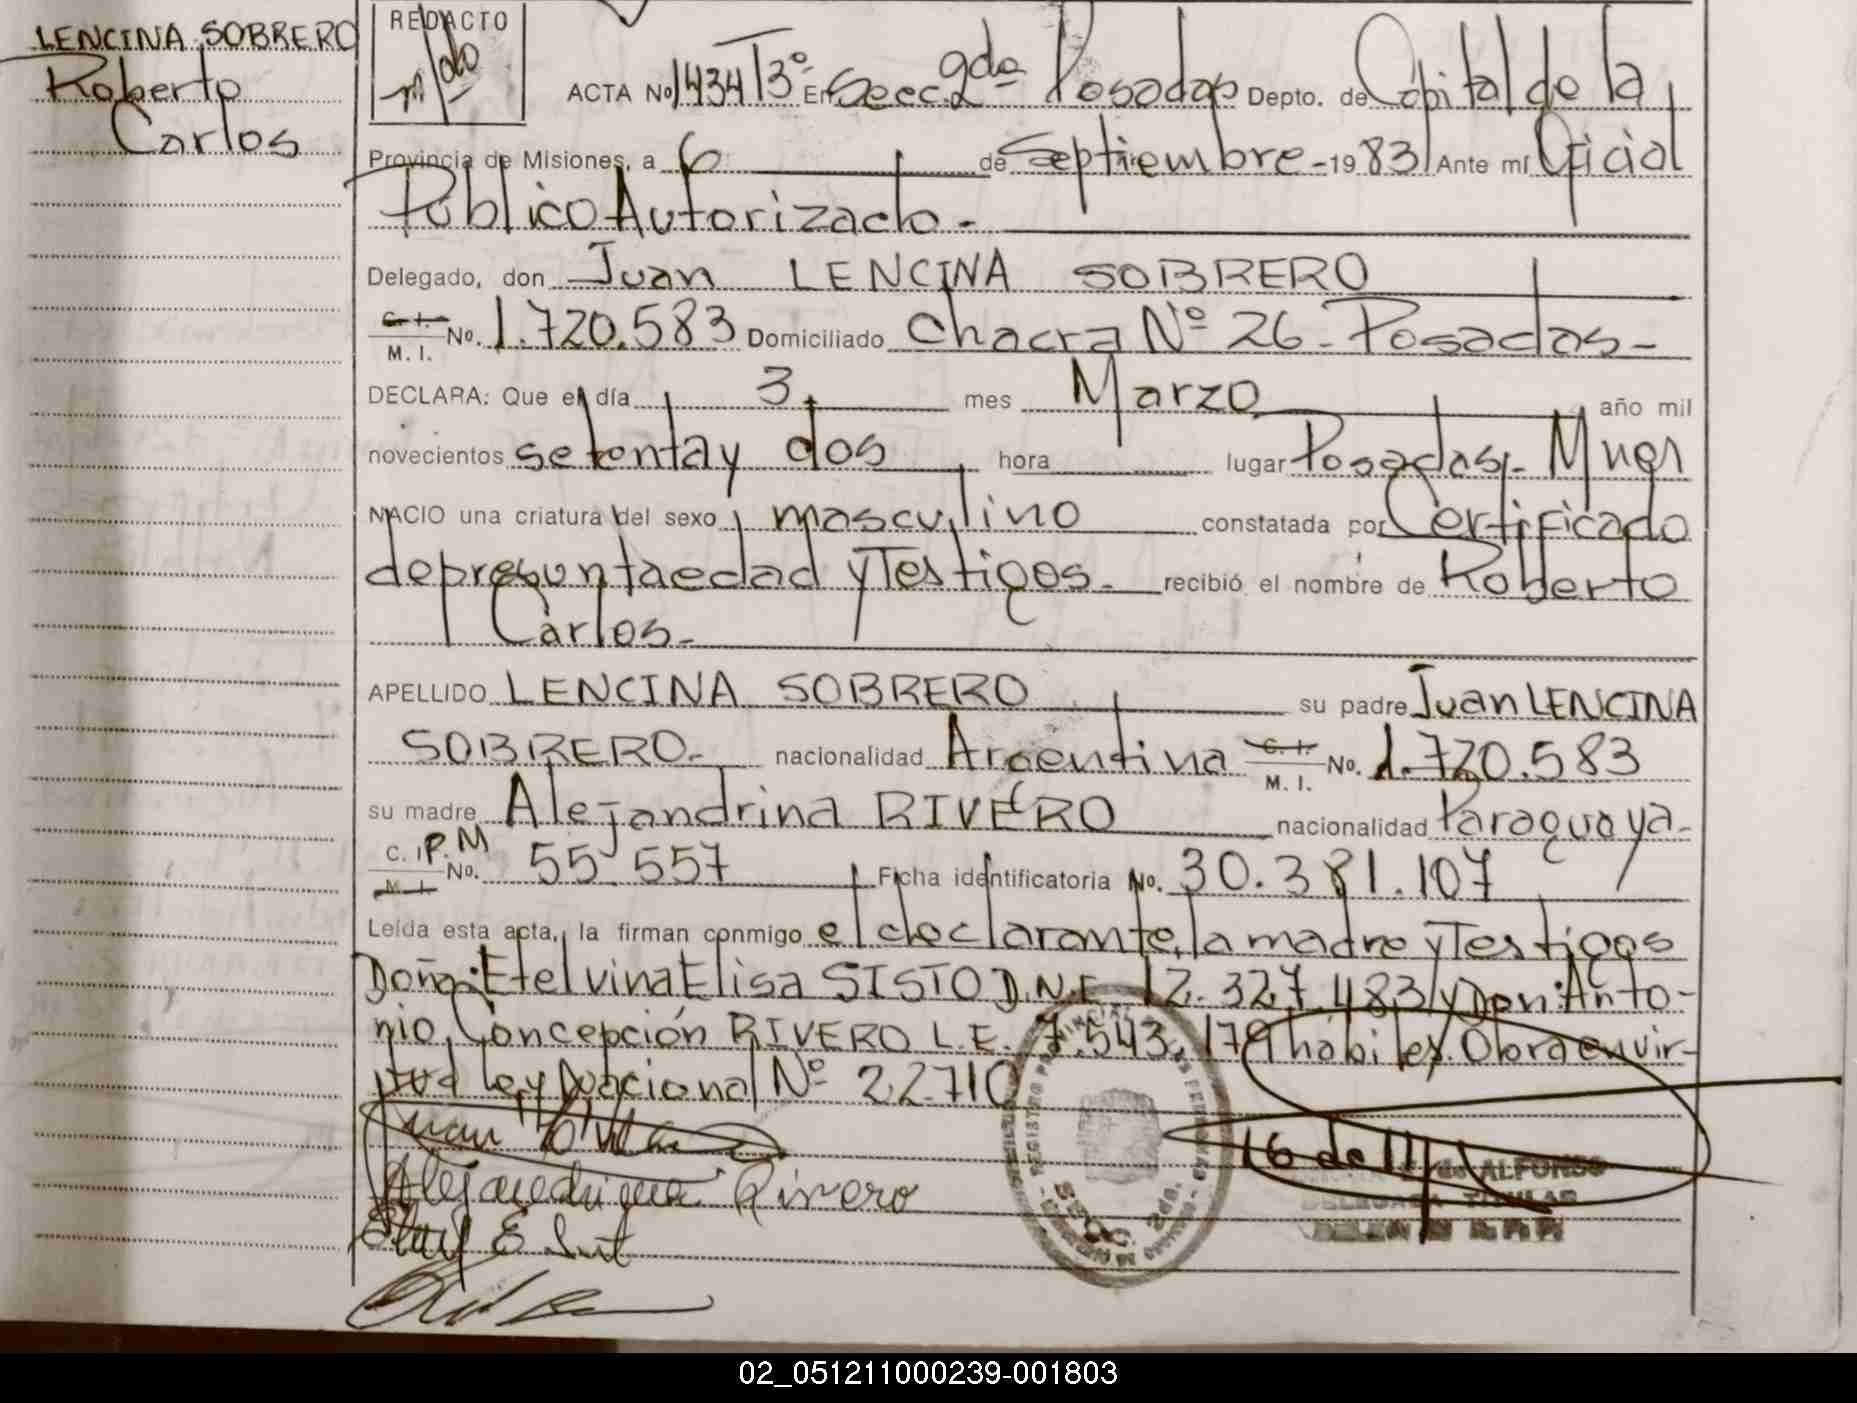 LENCINA SOBRERO
Roberto
Carlos
REDACTO
ACTA No 1434 T3º En Secc. 2da Posadas Depto. de Capital de la
Provincia de Misiones, a 6 de Septiembre - 19 83 Ante mí Oficial
Público Autorizado -
Delegado, don Juan LENCINA SOBRERO
C. I. M. I. No. 1.720.583 Domiciliado Chacra Nº 26 - Posadas -
DECLARA: Que el día 3 mes Marzo año mil
novecientos setenta y dos hora lugar Posadas, - Mnes
NACIO una criatura del sexo masculino constatada por Certificado
de presunta edad y Testigos - recibió el nombre de Roberto
Carlos -
APELLIDO LENCINA SOBRERO su padre Juan LENCINA
SOBRERO - nacionalidad Argentina C. I. M. I. No. 1.720.583
su madre Alejandrina RIVERO nacionalidad Paraguaya -
C. I. P. M M. I. No. 55 557 Ficha identificatoria No. 30.381.107
Leída esta acta, la firman conmigo el declarante, la madre y Testigos
Doña: Etelvina Elisa SISTO D.N.I. 12.327.483 y Don: Anto-
nio Concepción RIVERO L.E. 7.543.179 habiles. Obra en vir-
tud Ley Nacional Nº 22.710
Alejandrina Rivero
REGISTRO PROVINCIAL
SECC. 2da.
de ALFONSO
DELEGADA TITULAR
02_051211000239-001803